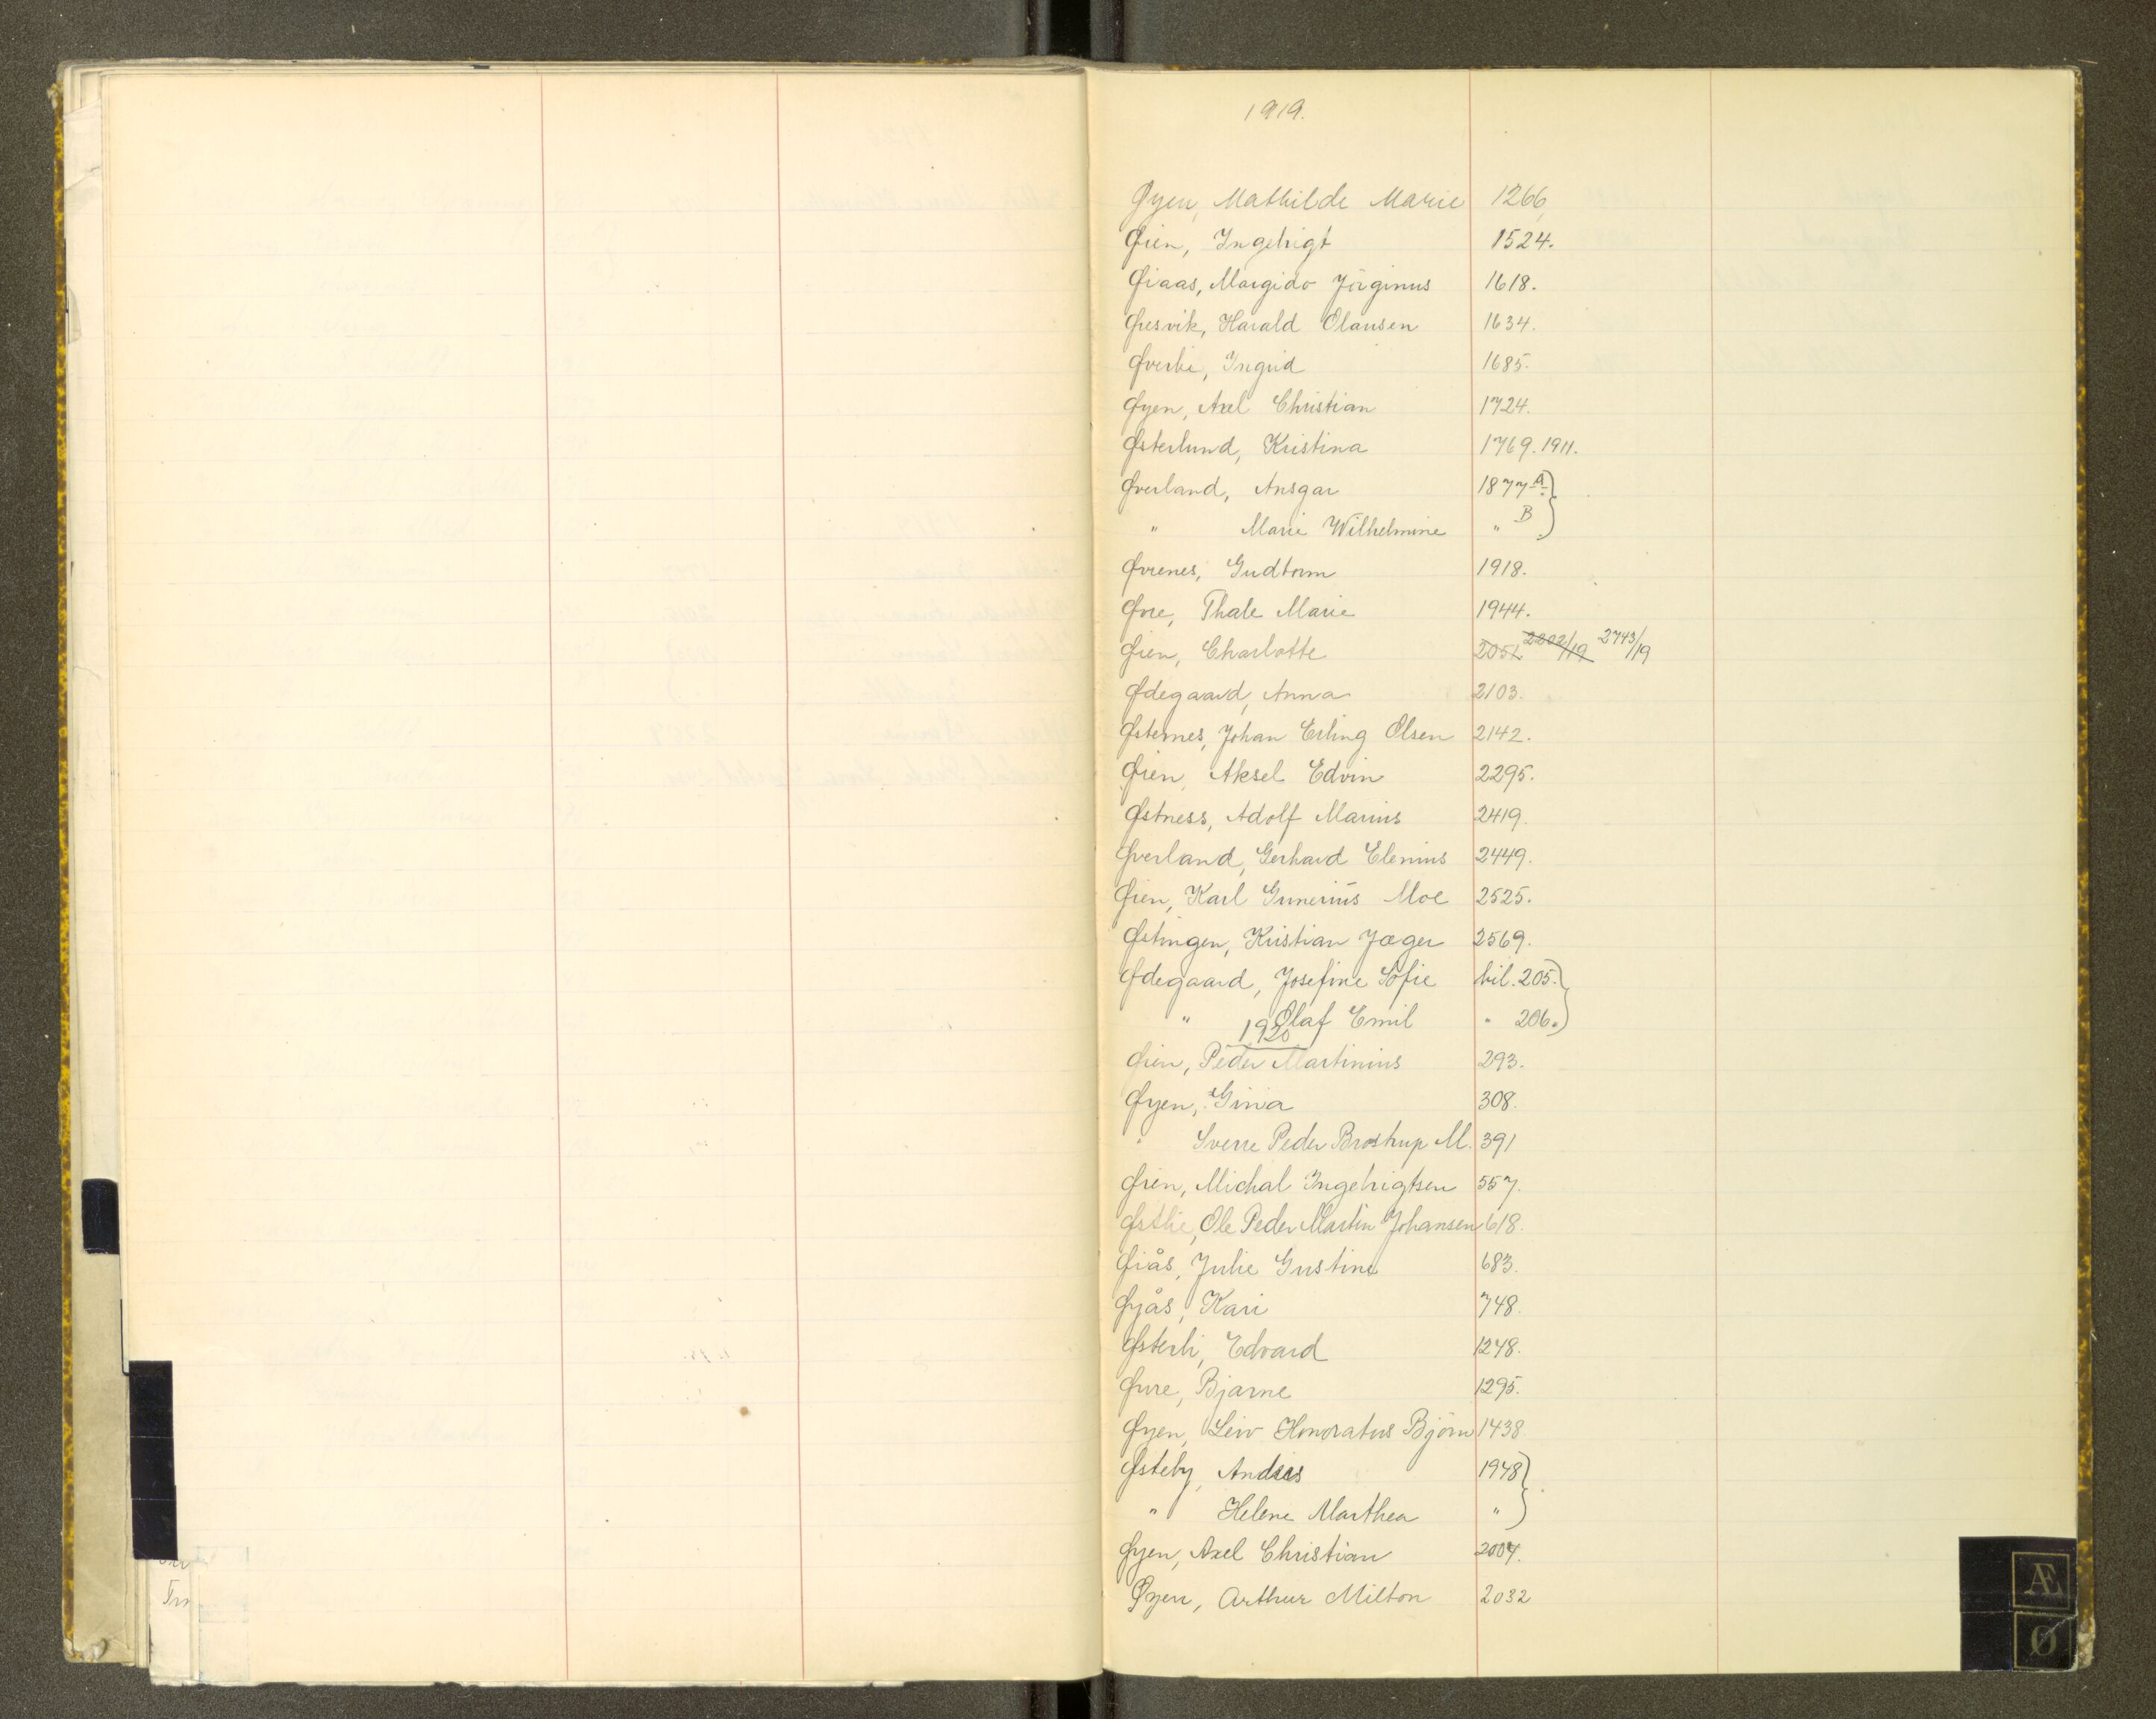 1919.
Øyen, Mathilde Marie 1266
Øien, Ingebrigt 1524.
Øiaas, Margido Jörginus 1618.
Øresvik, Harald Olausen 1634.
Øverli, Ingrid 1685.
Øyen, Axel Christian 1724.
Østerlund, Kristina 1769. 1911.
Øverland, Ansgar 1877 A.
" Marie Wilhelmine " B
Øvrenes, Gudtorm 1918.
Øvre, Thale Marie 1944.
Øien, Charlotte 2051 2202/19 2743/19
Ødegaard, Anna 2103.
Østernes, Johan Erling Olsen 2142.
Øien, Aksel Edvin 2295.
Østness, Adolf Marius 2419.
Øverland, Gerhard Elenius 2449.
Øien, Karl Gunerius Moe 2525.
Østingen, Kristian Jæger 2569.
Ødegaard, Josefine Sofie bil. 205.
" Olaf Emil " 206.
1920
Øien, Peder Martinius 293.
Øyen, Gina 308.
" Sverre Peder Brostrup M. 391
Øien, Michal Ingebrigtsen 557.
Østlie, Ole Peder Martin Johansen 618.
Øiås, Julie Gustine 683.
Øyås, Kari 748.
Østerli, Edvard 1248.
Øvre, Bjarne 1295.
Øyen, Leiv Honoratus Björn 1438
Østeby, Andreas 1948
" Helene Marthea "
Øyen, Axel Christian 2004.
Øyen, Arthur Milton 2032
Æ
Ø